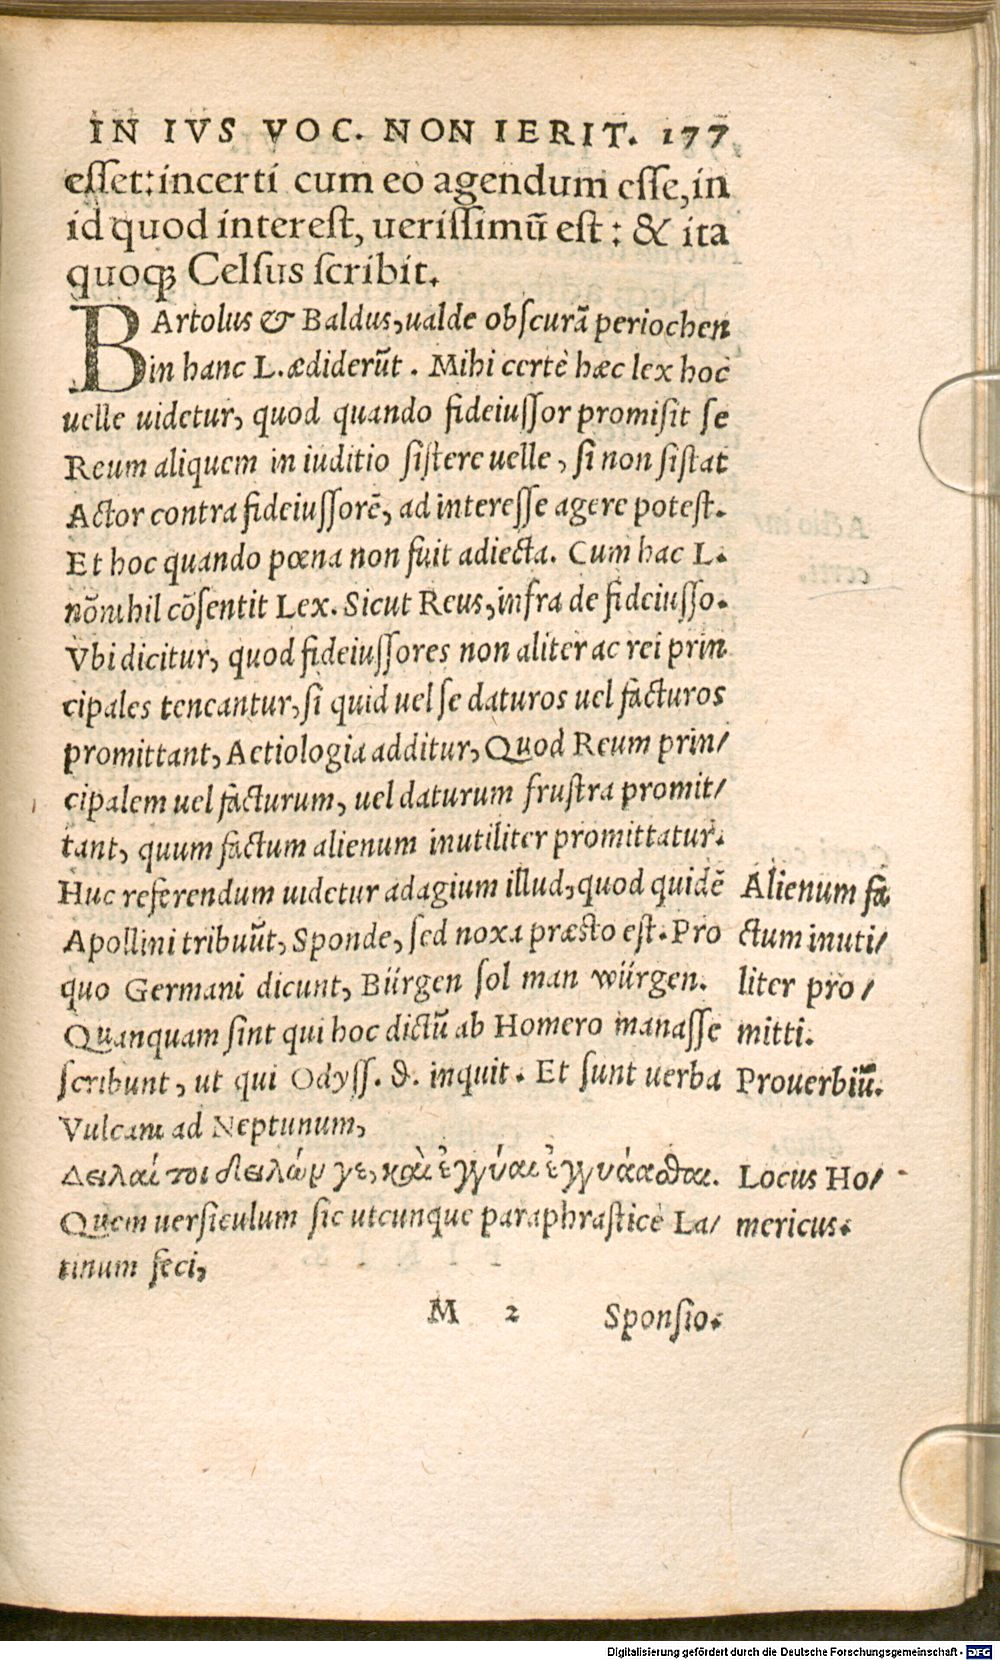 IN IVS VOC. NON IERIT. 177
esset: incerti cum eo agendum esse, in
id quod interest, uerissimū est: & ita
quoq; Celsus scribit.
BArtolus & Baldus, ualde obscurā periochen
in hanc L. ædiderūt. Mihi certè hæc lex hoc
uelle uidetur, quod quando fideiussor promisit se
Reum aliquem in iuditio sistere uelle, si non sistat
Actor contra fideiussorē, ad interesse agere potest.
Et hoc quando pœna non fuit adiecta. Cum hac L.
nōnihil cōsentit Lex. Sicut Reus, infra de fideiusso.
Vbi dicitur, quod fideiussores non aliter ac rei prin
cipales teneantur, si quid uel se daturos uel facturos
promittant, Aetiologia additur, Quod Reum prin/
cipalem uel facturum, uel daturum frustra promit/
tant, quum factum alienum inutiliter promittatur.
Huc referendum uidetur adagium illud, quod quidē
Apollini tribuūt, Sponde, sed noxa præsto est. Pro
quo Germani dicunt, Bürgen sol man würgen.
Quanquam sint qui hoc dictū ab Homero manasse
scribunt, ut qui Odyss. θ. inquit. Et sunt uerba
Vulcani ad Neptunum,
Δειλαί τοι δειλῶν γε, καὶ ἐγγύαι ἐγγυάασθαι.
Quem uersiculum sic utcunque paraphrasticè La/
tinum feci,
M 2 Sponsio.
Alienum fa
ctum inuti/
liter pro/
mitti.
Prouerbiū.
Locus Ho/
mericus.
Digitalisierung gefördert durch die Deutsche Forschungsgemeinschaft - DFG